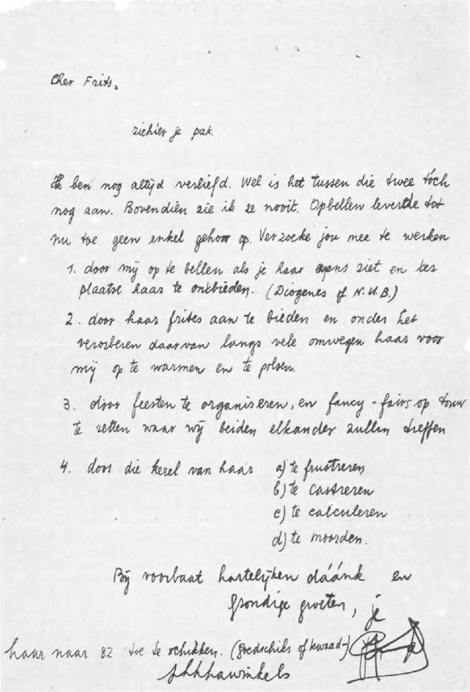 Cher Frits,
ziehier je pak.
Ik ben nog altijd verliefd. Wel is het tussen die twee toch
nog aan. Bovendien zie ik ze nooit. Opbellen leverde tot
nu toe geen enkel gehoor op. Verzoeke jou mee te werken
1. door mij op te bellen als je haar ergens ziet en ter
plaatse haar te ontbieden. (Diogenes of N.U.B.)
2. door haar frites aan te bieden en onder het
verorberen daarvan langs vele omwegen haar voor
mij op te warmen en te polsen.
3. door feesten te organiseren, en fancy-fairs op touw
te zetten waar wij beiden elkander zullen treffen
4. door die kerel van haar a) te frustreren
b) te castreren
c) te calculeren
d) te moorden.
Bij voorbaat hartelijken dáánk en
grondige groeten, je
haar naar 82 toe te schikken. (goedschiks of kwaad-)